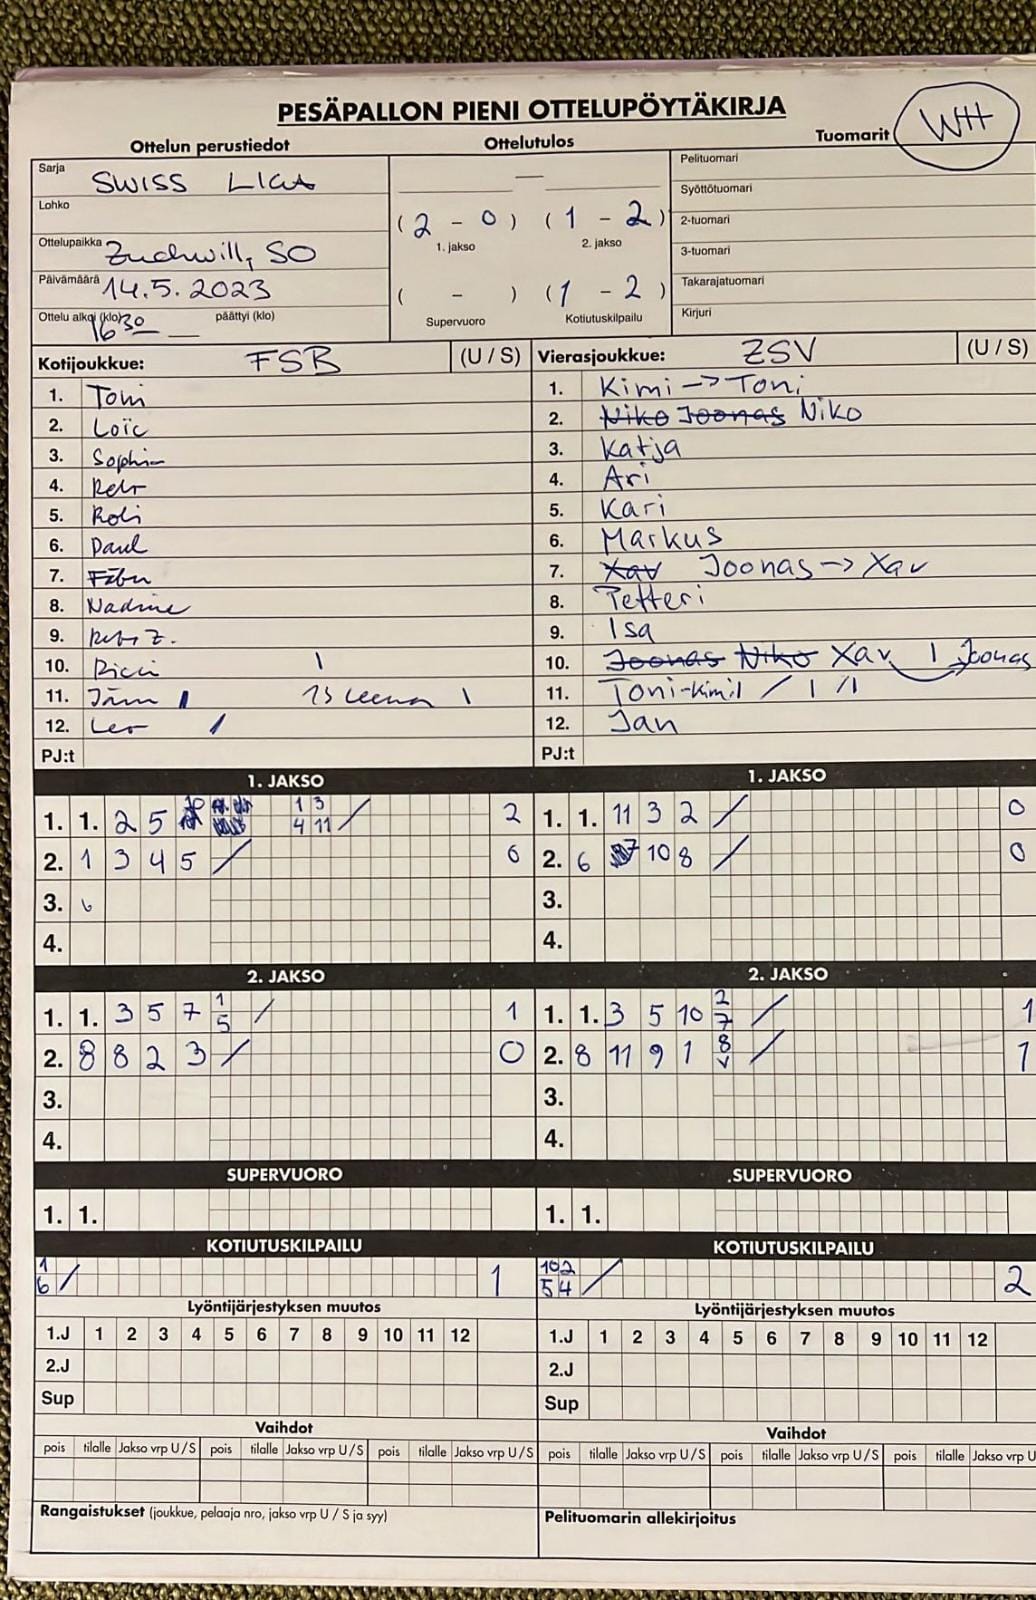 PESÄPALLON PIENI OTTELUPÖYTÄKIRJA
WH
Ottelun perustiedot Ottelutulos Tuomarit
Sarja SWISS LIGA
Lohko
Ottelupaikka Zuchwill, SO
Päivämäärä 14.5.2023
Ottelu alkoi (klo) 1630 päättyi (klo)
—
( 2 - 0 ) ( 1 - 2 )
1. jakso 2. jakso
( - ) ( 1 - 2 )
Supervuoro Kotiutuskilpailu
Pelituomari
Syöttötuomari
2-tuomari
3-tuomari
Takarajatuomari
Kirjuri
Kotijoukkue: FSB (U / S)
1. Tomi
2. Loïc
3. Sophie
4. Reto
5. Roli
6. Paul
7. Fäbu
8. Nadine
9. Z.
10. Rici |
11. Jäm | 13 Leena |
12. Leo /
PJ:t
Vierasjoukkue: ZSV (U / S)
1. Kimi -> Toni
2. Niko Joonas Niko
3. Katja
4. Ari
5. Kari
6. Markus
7. Xav Joonas -> Xav
8. Petteri
9. Isa
10. Joonas Niko Xav | Joonas
11. Toni-Kimi / | /|
12. Jan
PJ:t
1. JAKSO
1. 1. 2 5 1 3 / 2
4 11
2. 1 3 4 5 / 0
3. 6
4.
1. JAKSO
1. 1. 11 3 2 / 0
2. 6 7 10 8 / 0
3.
4.
2. JAKSO
1. 1. 3 5 7 1 / 1
5
2. 8 8 2 3 / 0
3.
4.
2. JAKSO
1. 1. 3 5 10 2 / 1
7
2. 8 11 9 1 8 / 1
v
3.
4.
SUPERVUORO
1. 1.
SUPERVUORO
1. 1.
KOTIUTUSKILPAILU
1 / 1
6
KOTIUTUSKILPAILU
102 / 2
54
Lyöntijärjestyksen muutos
1.J 1 2 3 4 5 6 7 8 9 10 11 12
2.J
Sup
Lyöntijärjestyksen muutos
1.J 1 2 3 4 5 6 7 8 9 10 11 12
2.J
Sup
Vaihdot
pois tilalle Jakso vrp U/S pois tilalle Jakso vrp U/S pois tilalle Jakso vrp U/S
Vaihdot
pois tilalle Jakso vrp U/S pois tilalle Jakso vrp U/S pois tilalle Jakso vrp U
Rangaistukset (joukkue, pelaaja nro, jakso vrp U / S ja syy)
Pelituomarin allekirjoitus